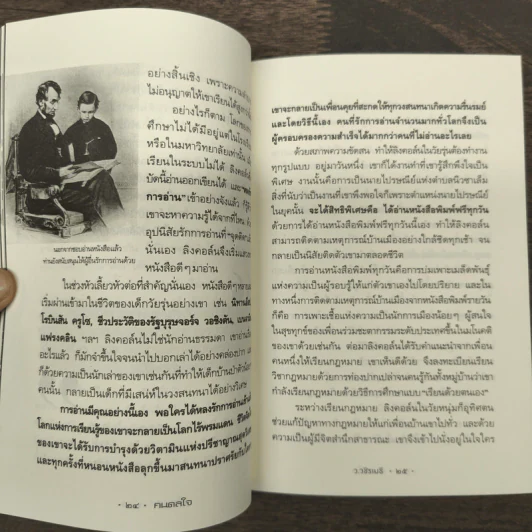 อย่างสิ้นเชิง เพราะความ
ไม่อนุญาตให้เขาเรียนได้สูง
อย่างไรก็ตาม โลก
ศึกษาไม่ได้มีอยู่แต่ในโรงเรีย
หรือในมหาวิทยาลัยเท่านั้น
เรียนในระบบไม่ได้ ลิงคอล์น
บัดนี้อ่านออกเขียนได้ และ
การอ่าน" เข้าอย่างจังแล้ว
เขาจะหาความรู้ได้จากที่ไหน
อุปนิสัยรักการอ่านที่
นั่นเอง ลิงคอล์นจึงเริ่ม
หนังสือดีๆ มาอ่าน
นอกจากชอบอ่านหนังสือแล้ว
ท่านยังสนับสนุนให้ผู้อื่นรักการอ่านด้วย
ในช่วงหัวเลี้ยวหัวต่อที่สำคัญนั่นเอง หนังสือดีๆ
เริ่มผ่านเข้ามาในชีวิตของเด็กวัยรุ่นอย่างเขา เช่น นิทาน
โรบินสัน ครูโซ, ชีวประวัติของรัฐบุรุษจอร์จ วอชิงตัน,
แฟรงคลิน ฯลฯ ลิงคอล์นไม่ใช่นักอ่านธรรมดา เขาอ่าน
อะไรแล้ว ก็มักจำขึ้นใจจนนำไปบอกเล่าได้อย่างคล่อง
ก็ด้วยความเป็นนักเล่าของเขาเช่นกันที่ทำให้เด็กบ้านป่า
คนนั้น กลายเป็นเด็กที่มีเสน่ห์ในวงสนทนาได้อย่าง
การอ่านมีคุณอย่างนี้เอง พอใครได้หลงรักการอ่าน
โลกแห่งการเรียนรู้ของเขาจะกลายเป็นโลกไร้พรมแดน
ของเขาจะได้รับการบำรุงด้วยวิตามินแห่งปรีชาญาณ
และทุกครั้งที่หนอนหนังสือลุกขึ้นมาสนทนาปราศรัย
• ๒๔ • คนดลใจ
เขาจะกลายเป็นเพื่อนคุยที่สะกดให้ทุกวงสนทนาเกิดความรื่นรมย์
และโดยวิธีนี้เอง คนที่รักการอ่านจำนวนมากทั่วโลกจึงเป็น
ผู้ครอบครองความสำเร็จได้มากกว่าคนที่ไม่อ่านอะไรเลย
ด้วยสภาพความขัดสน ทำให้ลิงคอล์นในวัยรุ่นต้องทำงาน
ทุกรูปแบบ อยู่มาวันหนึ่ง เขาก็ได้งานทำที่เขารู้สึกพึงใจเป็น
พิเศษ งานนั้นคือการเป็นนายไปรษณีย์แห่งตำบลนิวซาเล็ม
สิ่งที่นับว่าเป็นงานที่เขาพึงพอใจก็เพราะตำแหน่งนายไปรษณีย์
ในยุคนั้น จะได้สิทธิพิเศษคือ ได้อ่านหนังสือพิมพ์ฟรีทุกวัน
ด้วยการได้อ่านหนังสือพิมพ์ฟรีทุกวันนี้เอง ทำให้ลิงคอล์น
สามารถติดตามเหตุการณ์บ้านเมืองอย่างใกล้ชิดทุกเช้า จน
กลายเป็นนิสัยติดตัวเขามาตลอดชีวิต
การอ่านหนังสือพิมพ์ทุกวันคือการบ่มเพาะเมล็ดพันธุ์
แห่งความเป็นผู้รอบรู้ให้แก่ตัวเขาเองไปโดยปริยาย และใน
ทางหนึ่งการติดตามเหตุการณ์บ้านเมืองจากหนังสือพิมพ์รายวัน
ก็คือ การเพาะเชื้อแห่งความเป็นนักการเมืองน้อยๆ ผู้สนใจ
ในสุขทุกข์ของเพื่อนร่วมชะตากรรมระดับประเทศขึ้นในมโนคติ
ของเขาด้วยเช่นกัน ต่อมาลิงคอล์นได้รับคำแนะนำจากเพื่อน
คนหนึ่งให้เรียนกฎหมาย เขาเห็นดีด้วย จึงลงทะเบียนเรียน
วิชากฎหมายด้วยการท่องปากเปล่าจนคนรู้กันทั้งหมู่บ้านว่าเขา
กำลังเรียนกฎหมายด้วยวิธีการศึกษาแบบ "เรียนด้วยตนเอง"
ระหว่างเรียนกฎหมาย ลิงคอล์นในวัยหนุ่มก็อุทิศตน
ช่วยแก้ปัญหาทางกฎหมายให้แก่เพื่อนบ้านเขาไปทั่ว และด้วย
ความเป็นผู้มีจิตสำนึกสาธารณะ เขาจึงเข้าไปนั่งอยู่ในใจใคร
ว.วชิรเมธี • ๒๕ •